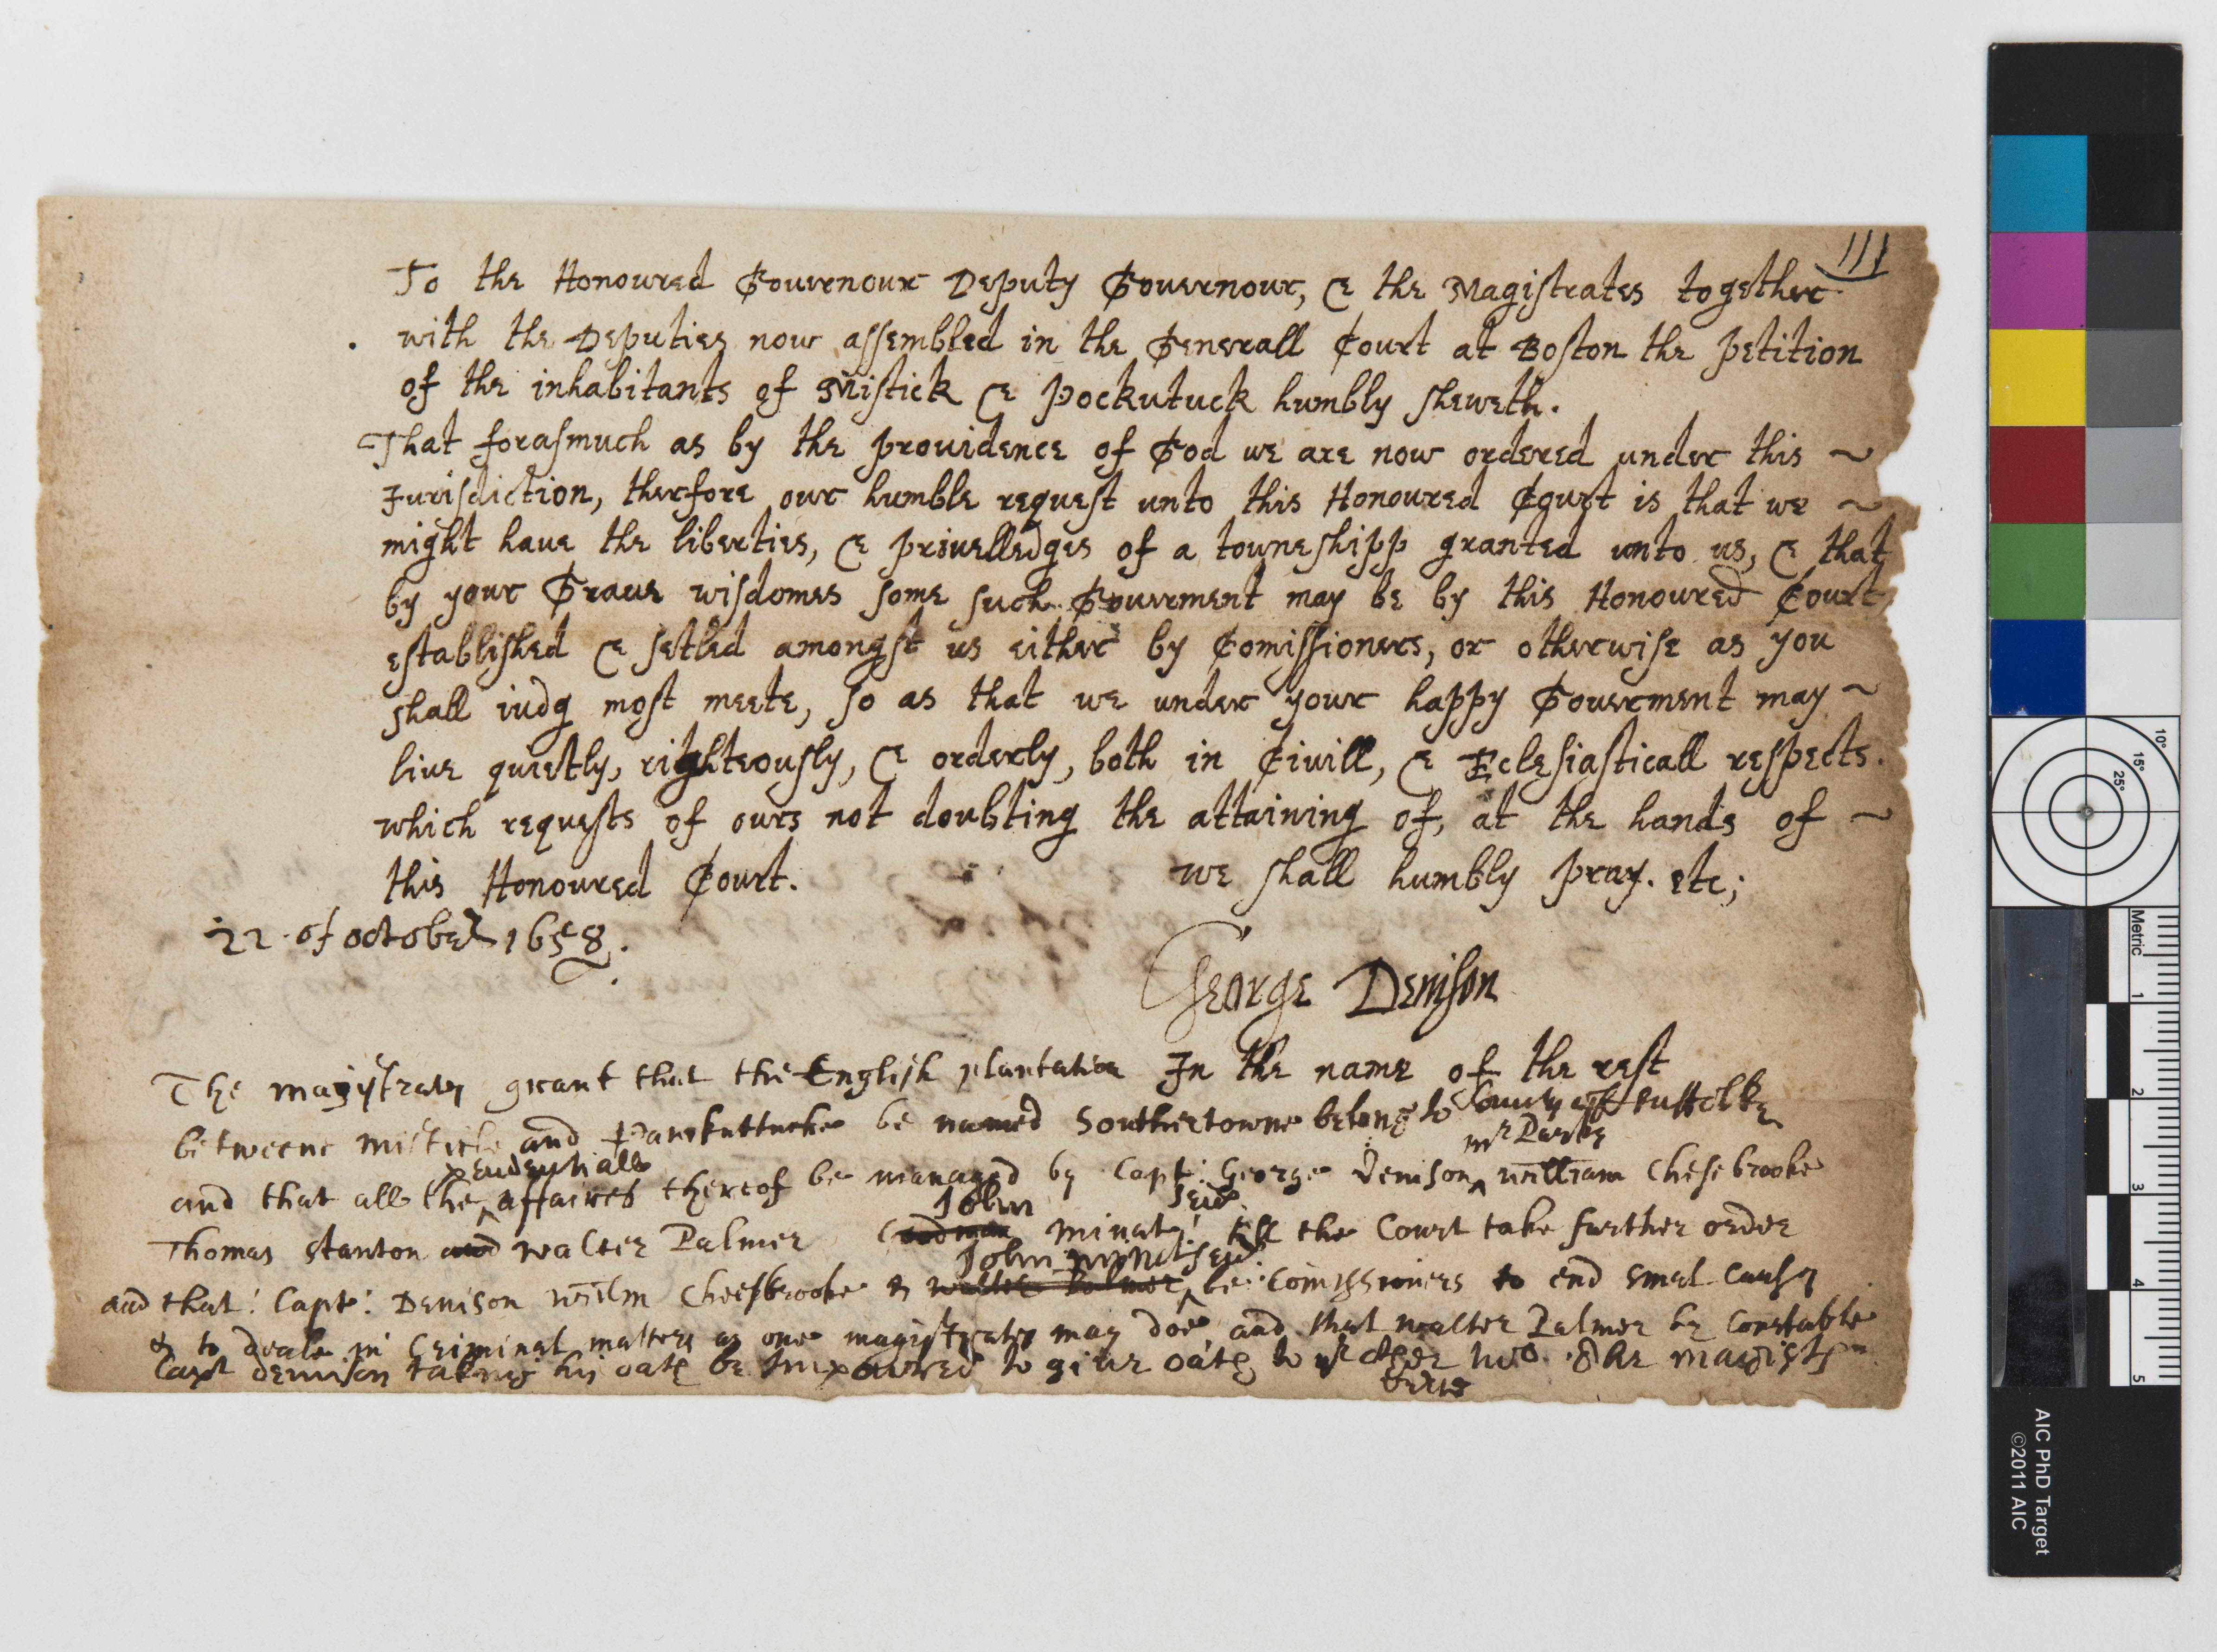 111
To the Honoured Gouernour Deputy Gouernour, & the Magistrates together
with the Deputies now assembled in the Generall Court at Boston the petition
of the inhabitants of Mistick & Pockutuck humbly sheweth.
That forasmuch as by the prouidence of God we are now ordered under this ~
Jurisdiction, therfore our humble request unto this Honoured Court is that we ~
might haue the liberties, & priuelledges of a towneshipp granted unto us, & that
by your Graue wisdomes some such Gouerment may be by this Honoured Court
established & setled amongst us either by Comissioners, or otherwise as you
shall iudg most meete, so as that we under your happy Gouerment may ~
liue quietly, righteously, & orderly, both in Ciuill, & Eclesiasticall respects.
which requests of ours not doubting the attaining of, at the hands of ~
this Honoured Court. we shall humbly pray. etc;
22 of october 1658.
George Denison
In the name of the rest
The magistrates grant that the English plantation
betweene misticke and Pawkuttucke be named Southertowne belong to County of Suffolke
mr Parke
and that all the prudentiall affaires thereof be managed by Capt: George Denison william Chesebrooke
John senr
Thomas Stanton and walter Palmer minat: till the Court take further order
John minot senr
and that: Capt: Denison willm Cheesbrooke & walter Palmer be Comissioners to end smal causes
& to deale in Criminal matters as one magistrate may doe, and that walter Palmer be Constable
Capt denison taking his oath be Impowred to give oath to ye other two
AIC PhD Target
©2011 AIC
Metric
1
2
3
4
5
10°
15°
25°